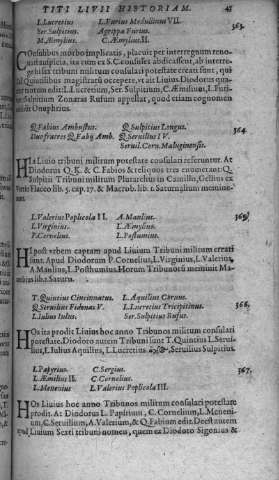 TITI LIVII HISTORIAM. 41
L. Lucretius L. Furius Medullinus VII. 363.
Ser. Sulpicius. Agrippa Furius.
M. Æmylius. C. Æmylius II.
COnsulibus morbo implicatis, placuit per interregnum reno-
uari auspicia, ita cum ex S. C. consules abdicassent, ab interre-
gibus tribuni militum consulari potestate creati sunt, qui
Diodorus
autem nondum edit: L. Lucretium, Ser. Sulpicium, C. Æmilium, L. Furi-
um Sulpicium Zonaras Rufum appellat, quod etiam cognomen
omisit Onuphrius.
Q. Fabius Ambustus. Q. Sulpitius Longus. 364.
Duo fratres Q. Fabij Amb. Q. Seruilius IV.
Seruil. Corn. Maluginensis.
HIs Liuio tribuni militum potestate consulari referuntur. At
Diodorus Q. K. & C. Fabios & reliquos tres enumerant. Q.
Sulpitii Tribuni militum Plutarchus in Camillo, Gellius ex
Verrio Flacco lib. 5. cap. 17. & Macrob. lib. 1. Saturnalium memine-
runt.
L. Valerius Poplicola II. A. Manlius. 365
L. Virginius. L. Æmylius.
P. Cornelius. L. Postumius.
HI post vrbem captam apud Liuium Tribuni militum creati
sunt. Apud Diodorum P. Cornelius, L. Virginius, L. Valerius,
A. Manlius, L. Posthumius. Horum Tribunatus meminit Ma-
T. Quintius Cincinnatus. L. Aquilius Coruus. 366.
Q. Seruilius Fidenas V. L. Lucretius Tricipitinus.
L. Iulius Iulus. Ser. Sulpitius Rufus.
HOs ita prodit Liuius hoc anno Tribunos militum consulari
potestate. Diodoro autem Tribuni sunt T. Quintius L. Serui-
lius, L. Iulius Aquilius, L. Lucretius, Seruilius Sulpitius.
L. Papyrius. C. Sergius. 367.
L. Æmilius II. C. Cornelius.
L. Menenius L. Valerius Poplicola III.
HOs Liuius hoc anno Tribunos militum consulari potestate
prodit. At Diodorus L. Papirium, C. Cornelium, L. Meneni-
um, C. Seruilium, A. Valerium, & Q. Fabium edit. Deest autem
apud Liuium Sexti tribuni nomen, quem ex Diodoro Sigonius &